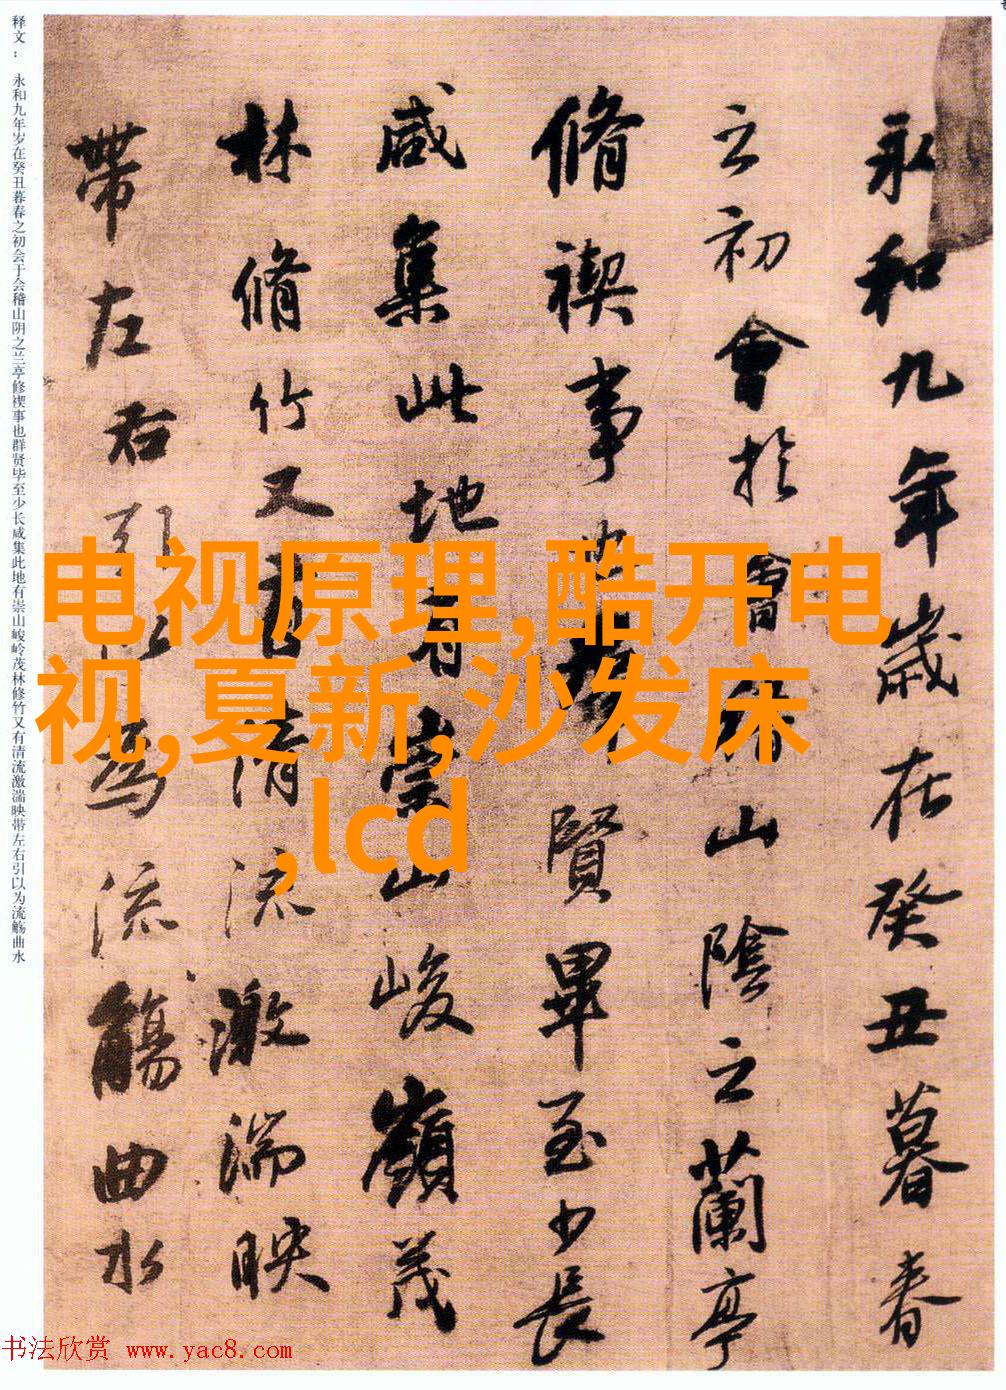 永和九年歲在癸丑暮春
之初會於會稽山陰之蘭亭
脩禊事也群賢畢至少長
咸集此地有崇山峻嶺茂
林脩竹又有清流激湍映
帶左右引以為流觴曲水
释文：永和九年岁在癸丑暮春之初会于会稽山阴之兰亭修禊事也群贤毕至少长咸集此地有崇山峻岭茂林修竹又有清流激湍映带左右引以为流觞曲水
电视原理,酷开电
视,夏新,沙发床
,lcd
书法欣赏 www.yac8.com